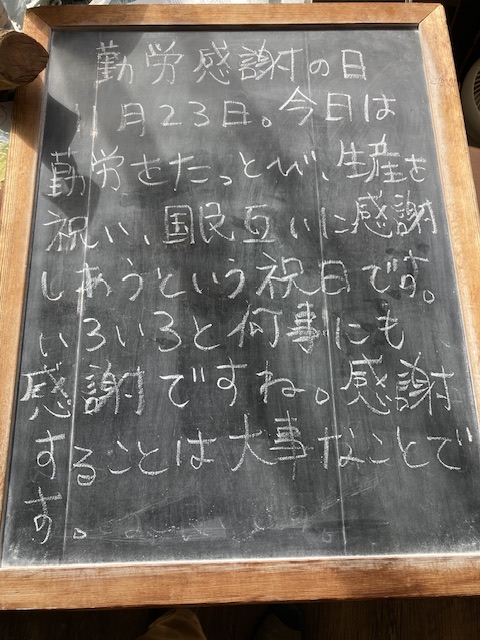 勤労感謝の日
11月23日。今日は
勤労をたっとび、生産を
祝い、国民互いに感謝
しあうという祝日です。
いろいろと何事にも
感謝ですね。感謝
することは大事なことで
す。